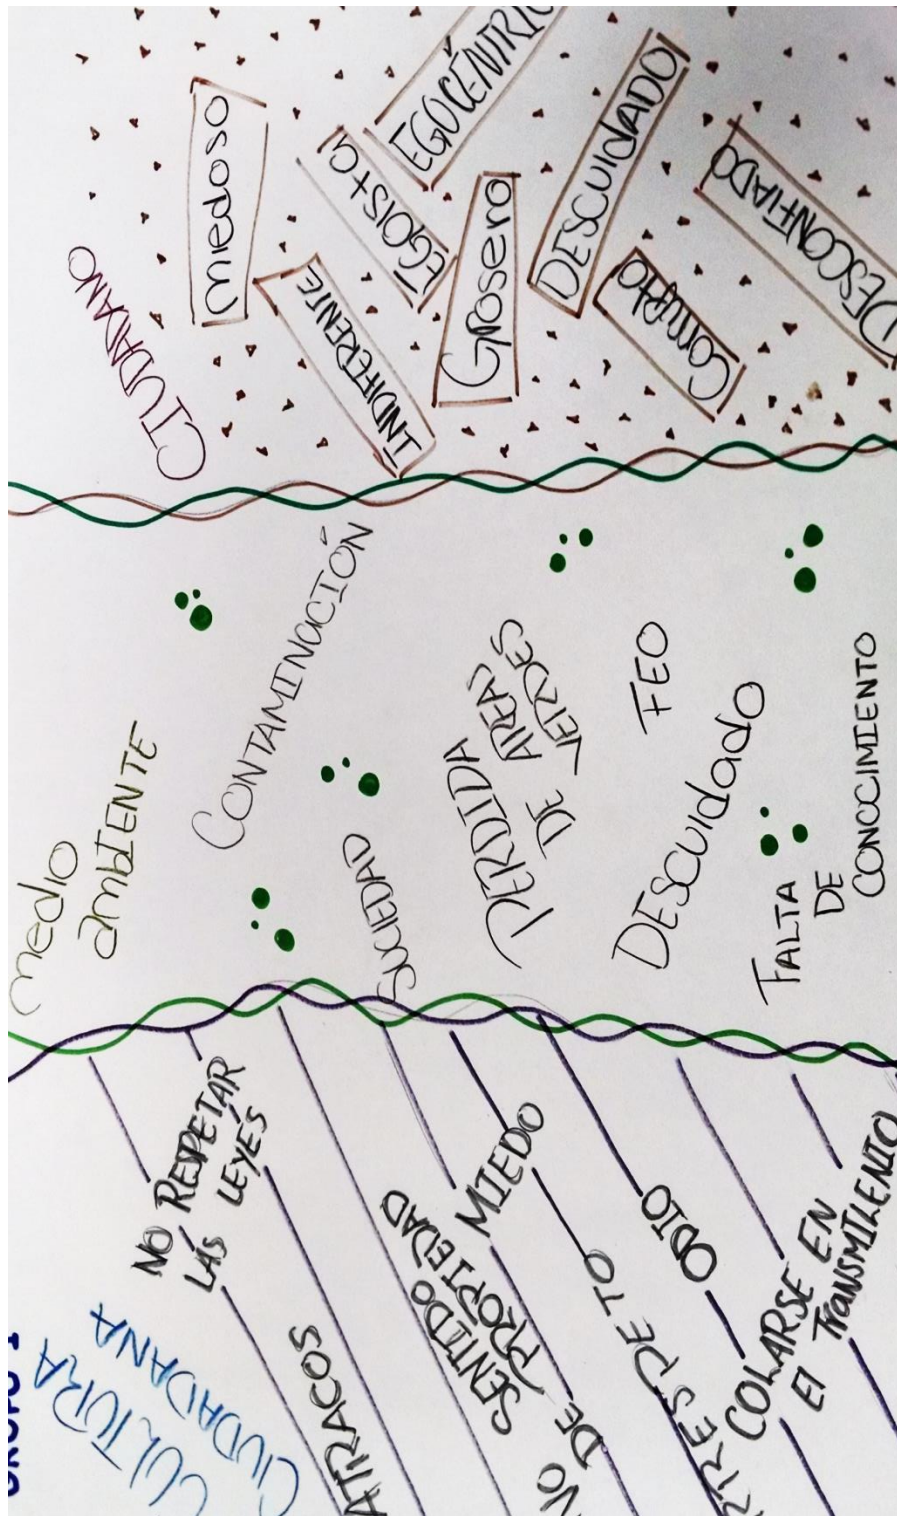 CULTURA
CIUDADANA
NO RESPETAR
LAS LEYES
ATRACOS
SENTIDO
NO DE PROPIEDAD
MIEDO
RRESPETO
ODIO
COLARSE EN
El TRANSMILENIO
medio
ambIENTE
CONTAMINACIÓN
SUCIEDAD
PERDIDA
DE AREAS
VERDES
FEO
DESCUIdado
FALTA
DE
CONOCIMIENTO
CIUDADANO
miedoso
INDIFERENTE
EGOISta
EGOCÉNTRIC
Grosero
DESCUIdADO
Corrupto
DESCONFIADO